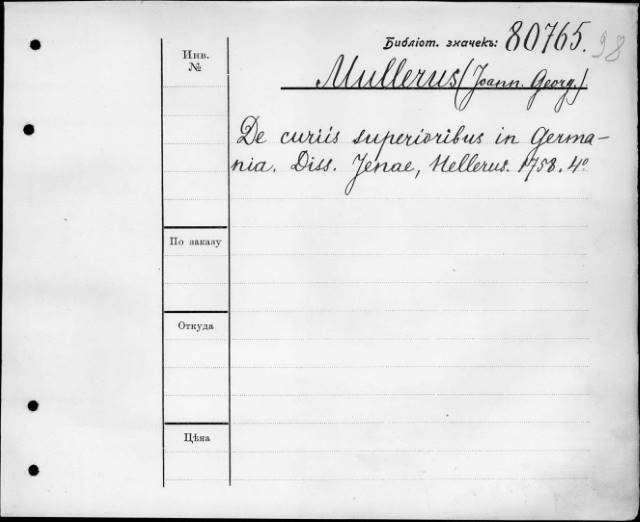 Библіот. значекъ: 80765.
98
Инв.
№
Mullerus (Joann. Georg.)
De curiis superioribus in Germa-
nia. Diss. Jenae, Hellerus. 1758. 4º
По заказу
Откуда
Цѣна